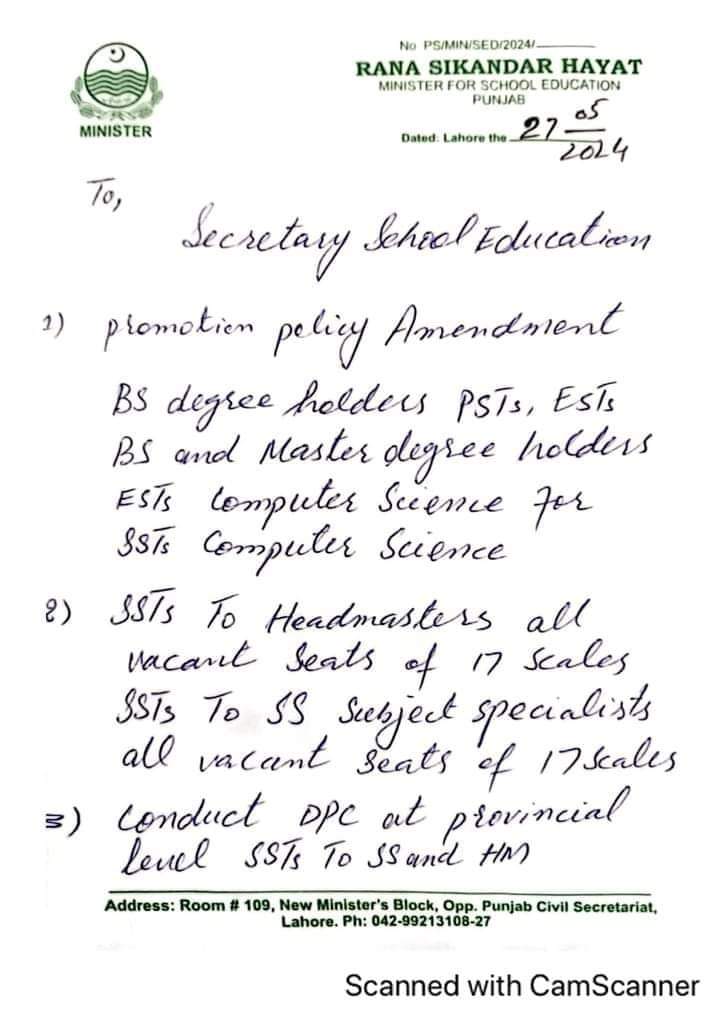 No PS/MIN/SED/2024/
RANA SIKANDAR HAYAT
MINISTER FOR SCHOOL EDUCATION
PUNJAB
MINISTER
Dated: Lahore the 27 05
2024
To,
Secretary School Education
1) promotion policy Amendment
BS degree holders PSTs, ESTs
BS and Master degree holders
ESTs Computer Science For
SSTs Computer Science
2) SSTs To Headmasters all
vacant Seats of 17 Scales
SSTs To SS Subject specialists
all vacant Seats of 17 Scales
3) Conduct DPC at provincial
level SSTs To SS and HM
Address: Room # 109, New Minister's Block, Opp. Punjab Civil Secretariat,
Lahore. Ph: 042-99213108-27
Scanned with CamScanner